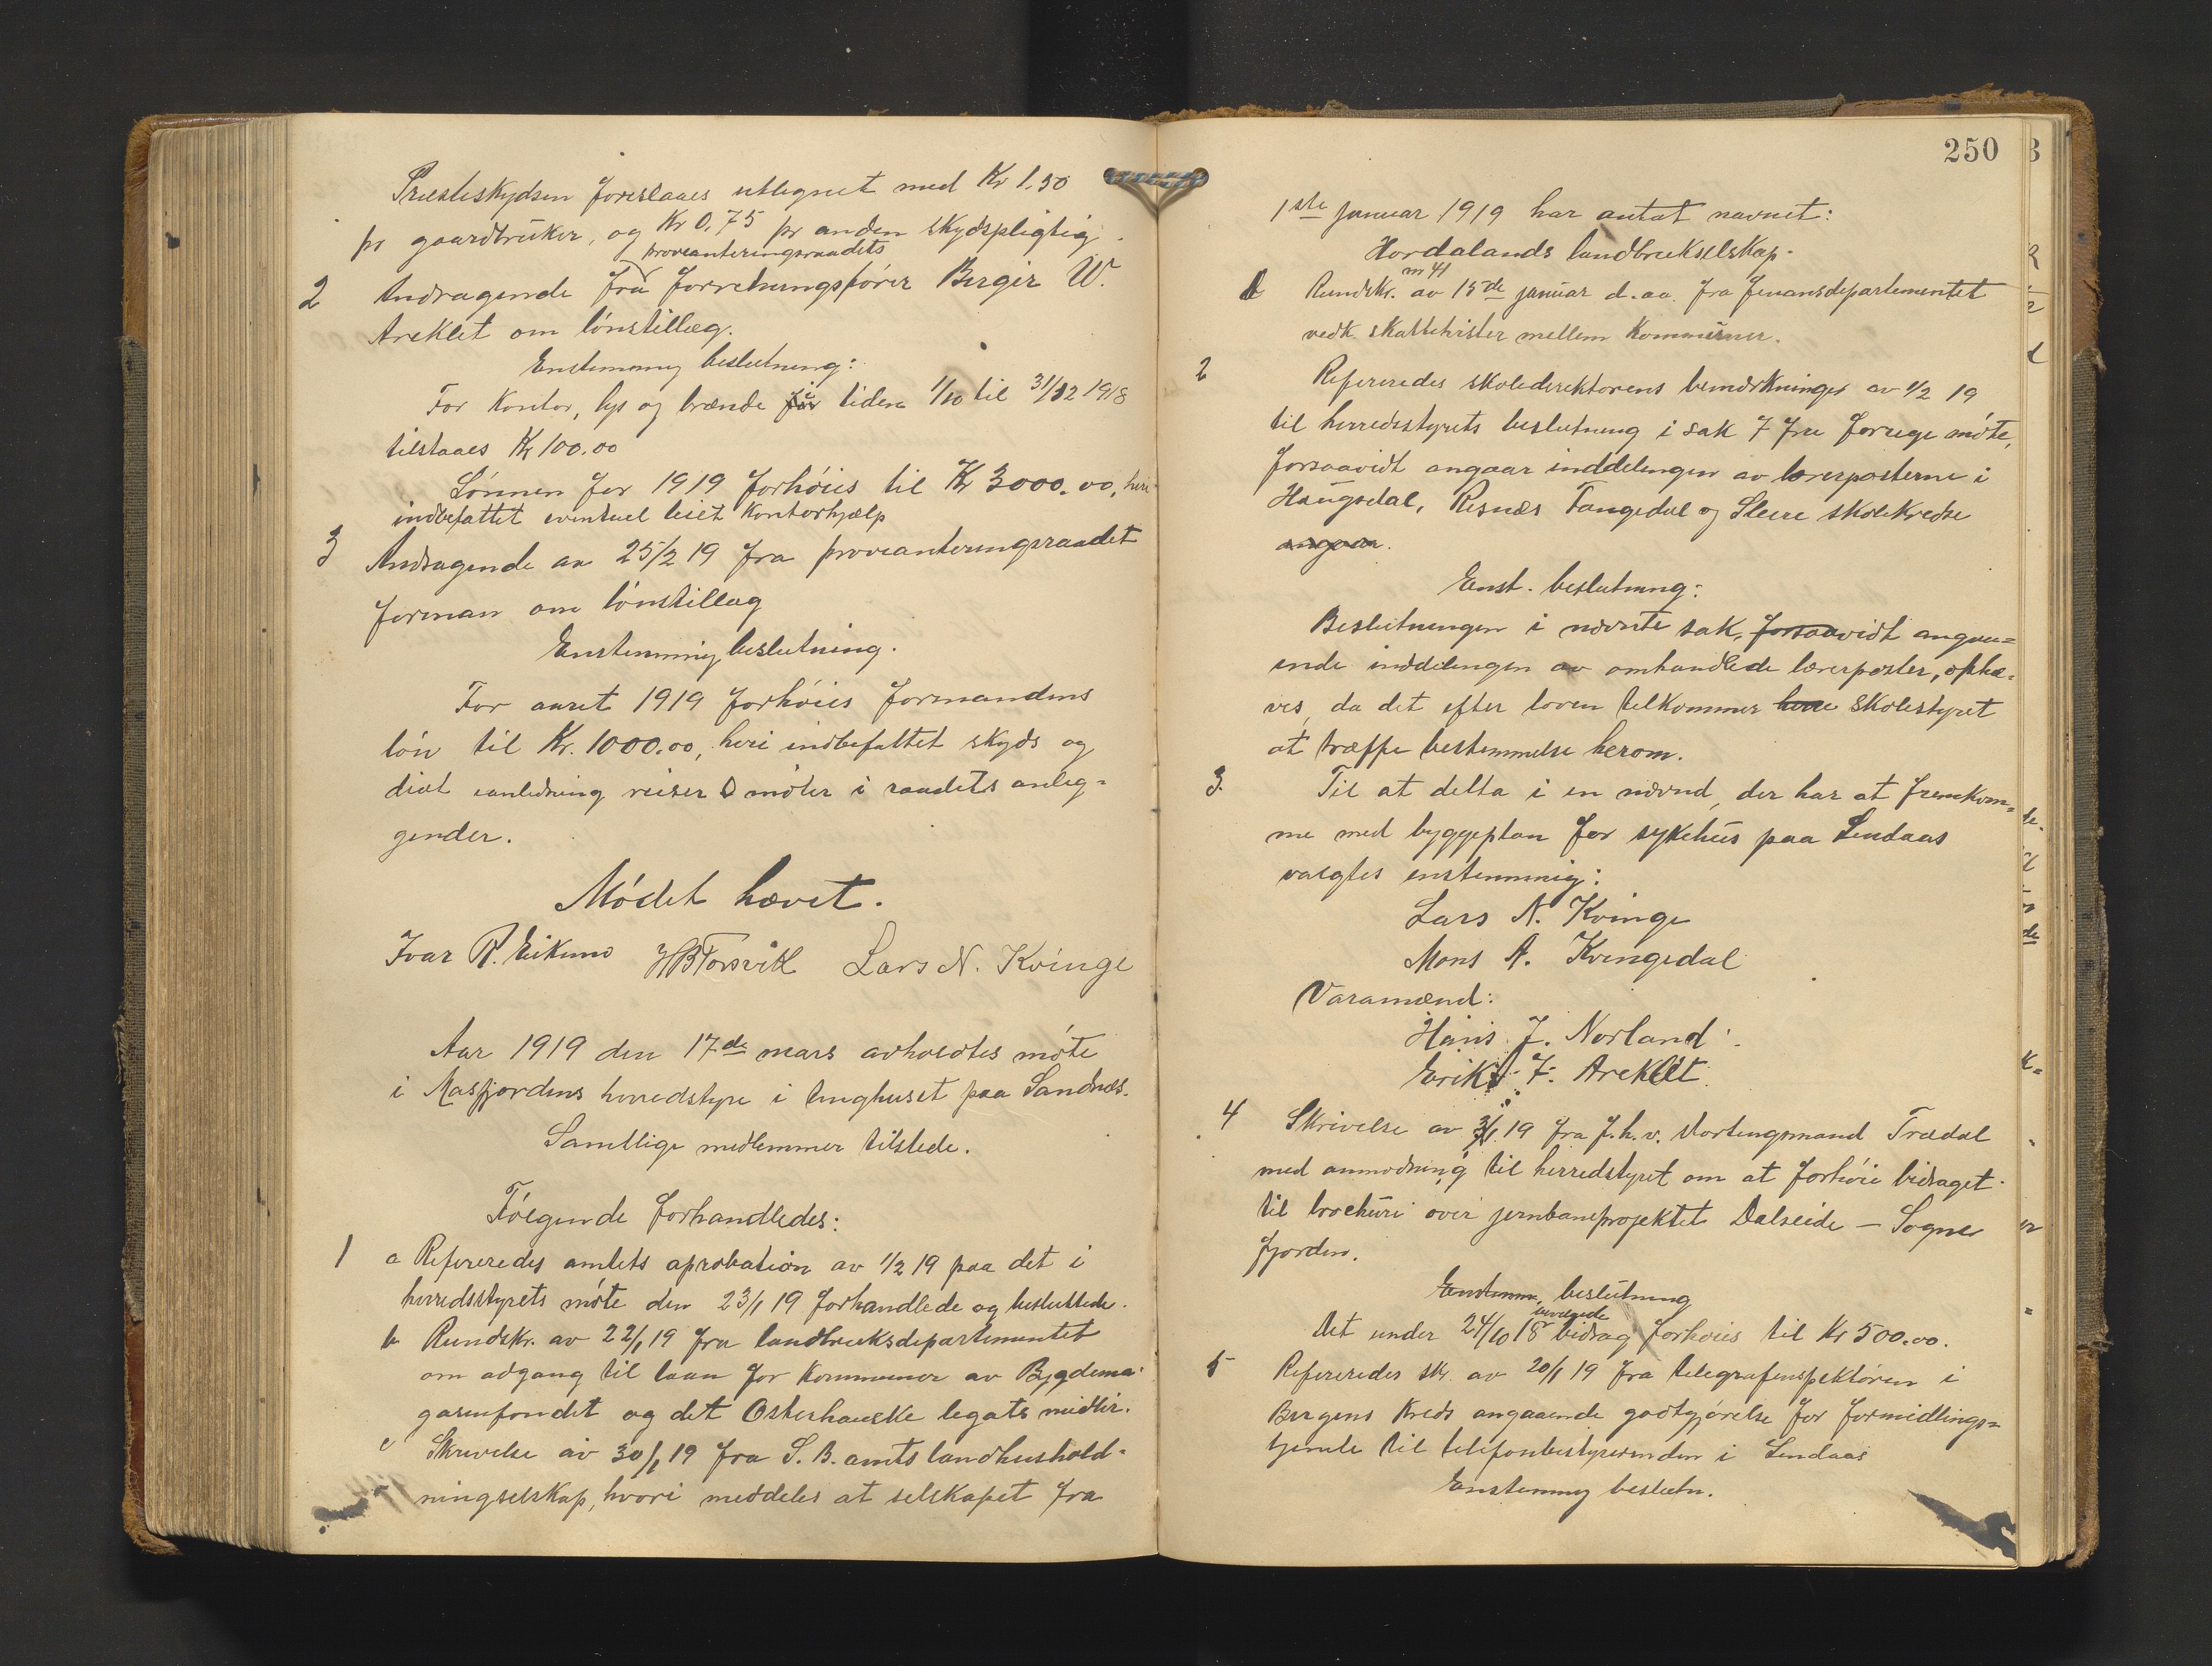 Presteskydsen foreslaaes utlegnet med Kr 1.50
pr gaardbruker, og Kr 0,75 pr anden skydspligtig.
provianteringsraadets
2 Andragende fra forretningsfører Birger W.
Areklet om lønstillæg.
Enstemmig beslutning:
For kontor, lys og brænde for tiden 1/10 til 31/12 1918
tilstaaes Kr 100.00
Lønnen for 1919 forhøies til Kr 3000.00, heri
indbefattet eventuel leiet kontorhjælp
3 Andragende av 25/2 19 fra provianteringsraadet
forman om lønstillæg
Enstemmig beslutning.
For aaret 1919 forhøies formandens
løn til Kr. 1000.00, heri indbefattet skyds og
diæt i anledning reiser & møter i raadets anleg-
gender.
Mødet hævet.
Ivar R. Eikemo HBTorsvik Lars N. Kvinge
Aar 1919 den 17de mars avholdtes møte
i Masfjordens herredstyre i tinghuset paa Sandnes.
Samtlige medlemmer tilstede.
Følgende forhandledes:
1 a Refereredes amtets aprobation av 1/2 19 paa det i
herredsstyrets møte den 23/1 19 forhandlede og besluttede.
b Rundskr. av 22/1 19 fra landbruksdepartementet
om adgang til laan for kommuner av Bygdema-
gasinfondet og det Osterhauske legats midler.
c Skrivelse av 30/1 19 fra S. B. amts landhushold-
ningselskap, hvori meddeles at selskapet fra
250
1ste januar 1919 har antat navnet:
Hordalands landbrukselskap.
nr 41
d Rundskr. av 15de januar d. aa. fra finansdepartementet
vedk. skattetvister mellem kommuner.
2 Refereredes skoledirektørens bemerkninger av 1/2 19
til herredsstyrets beslutning i sak 7 fra forrige møte,
forsaavidt angaar inddelingen av lærerposterne i
Haugsdal, Risnes Tangedal og Sleire skolekredse
angaar.
Enst. beslutning:
Beslutningen i nævnte sak, forsaavidt angaa-
ende inddelingen av omhandlede lærerposter, ophæ-
ves, da det efter loven tilkommer herre skolestyret
at træffe bestemmelse herom.
3. Til at delta i en nævnd, der har at fremkom-
me med byggeplan for sykehus paa Lindaas
valgtes enstemmig:
Lars N. Kvinge
Mons A. Kvingedal
Varamænd:
Hans J. Norland
Erik J. Areklet
4 Skrivelse av 3/1 19 fra f. h. v. stortingsmand Trædal
med anmodning til herredstyret om at forhøie bidraget
til brochure over jernbaneprojektet Dalseide – Sogne
fjorden.
Enstemm. beslutning
bevilgede
Det under 24/10 18 bidrag forhøies til Kr 500.00.
5 Refereredes skr. av 20/1 19 fra telegrafinspektøren i
Bergens kreds angaaende godtgjørelse for formidlings-
tjeneste til telefonbestyrerinden i Lindaas
Enstemmig beslutn.